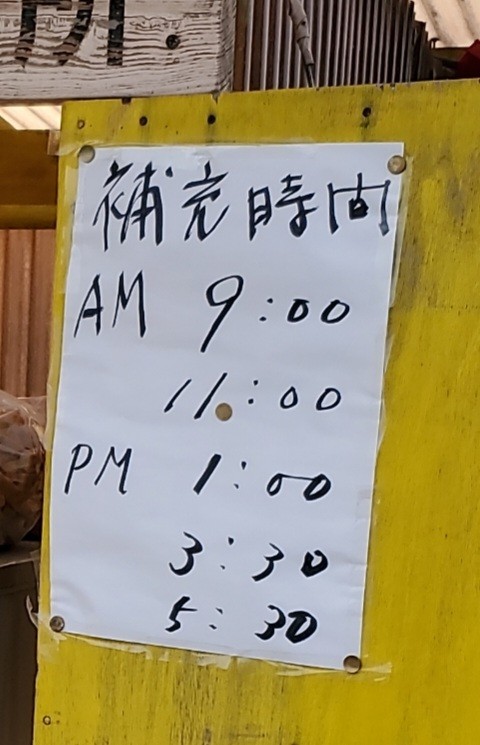 補充時間
AM 9:00
11:00
PM 1:00
3:30
5:30